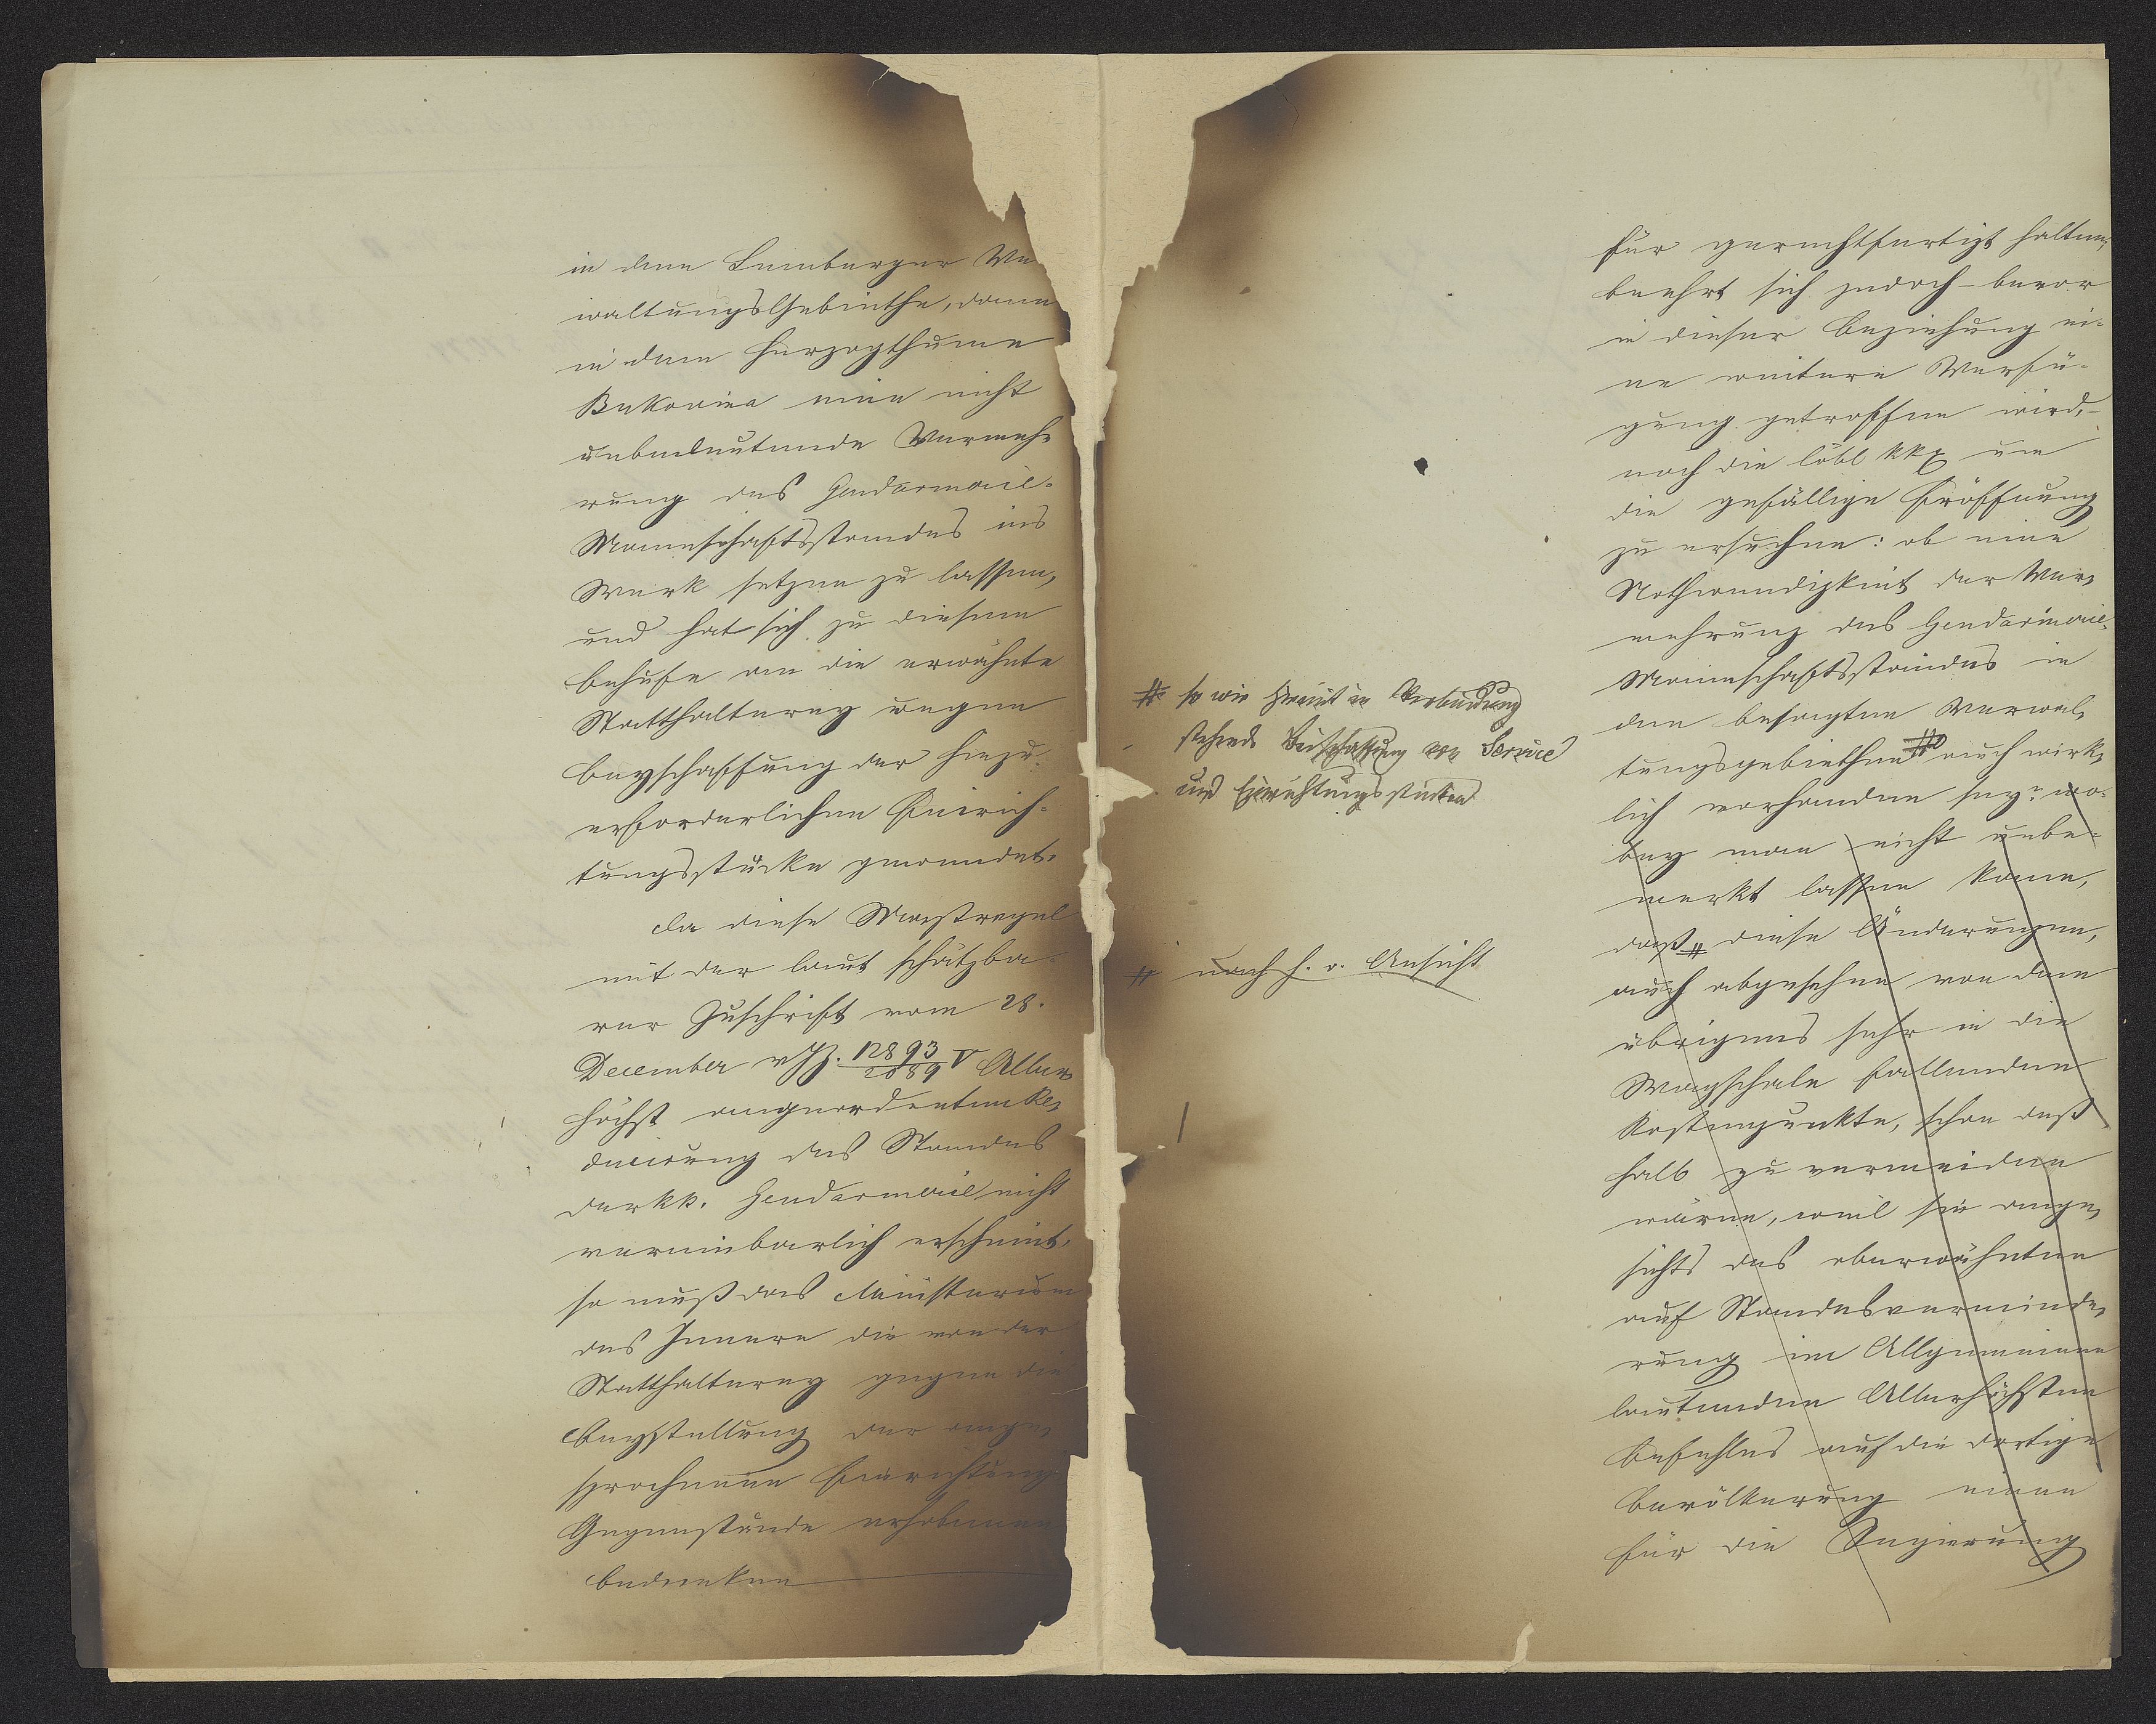 in dem Lemberger Ve
waltungsGebiethe, dann
in dem Herzogthume
Bukovina eine nicht
unbedeutende Vermeh-
rung des Gendarmerie-
Mannschaftsstandes ins
Werk setzen zu lassen,
und hat sich zu diesem
Behufe an die erwähnte
Statthalterey wegen
Beyschaffung der hiezu
erforderlichen Einrich-
tungsstücke gewendet.
Da diese Maßregel
mit der laut schätzba-
rer Zuschrift vom 28.
December v J Z. 12893/2089 V Aller
höchst angeordneten Re-
ducirung des Standes
der kk. Gendarmerie nicht
vereinbarlich erscheint,
so muß das Ministerium
des Innern die von der
Statthalterey gegen die
Beystellung der ange-
sprochenen Einrichtungs
Gegenstände erhobenen
Bedenken
für gerechtfertigt halten,
beehrt sich jedoch - bevor
in dieser Beziehung ei-
ne weitere Verfü-
gung getroffen wird, -
noch die löbl kk um
die gefällige Eröffnung
zu ersuchen: ob eine
Nothwendigkeit der Ver-
mehrung des Gendarmerie-
Mannschaftsstandes in
den besagten Verwal-
tungsgebiethen # auch wirk-
lich vorhanden sey? wo-
bey man nicht unbe-
merkt lassen kann,
daß # diese Änderungen,
auch abgesehen von dem
übrigens sehr in die
Wagschale fallenden
Kostenpunkte, schon deß
halb zu vermeiden
wären, weil sie ange-
sichts des oberwähnten
auf Standesverminde-
rung im Allgemeinen
lautenden Allerhöchsten
Befehles auf die dortige
Bevölkerung einen
für die Regierung
# so wie hiemit in Verbindung
stehende Beischaffung von Service
und Einrichtungsstücken
# nach h. o. Ansicht